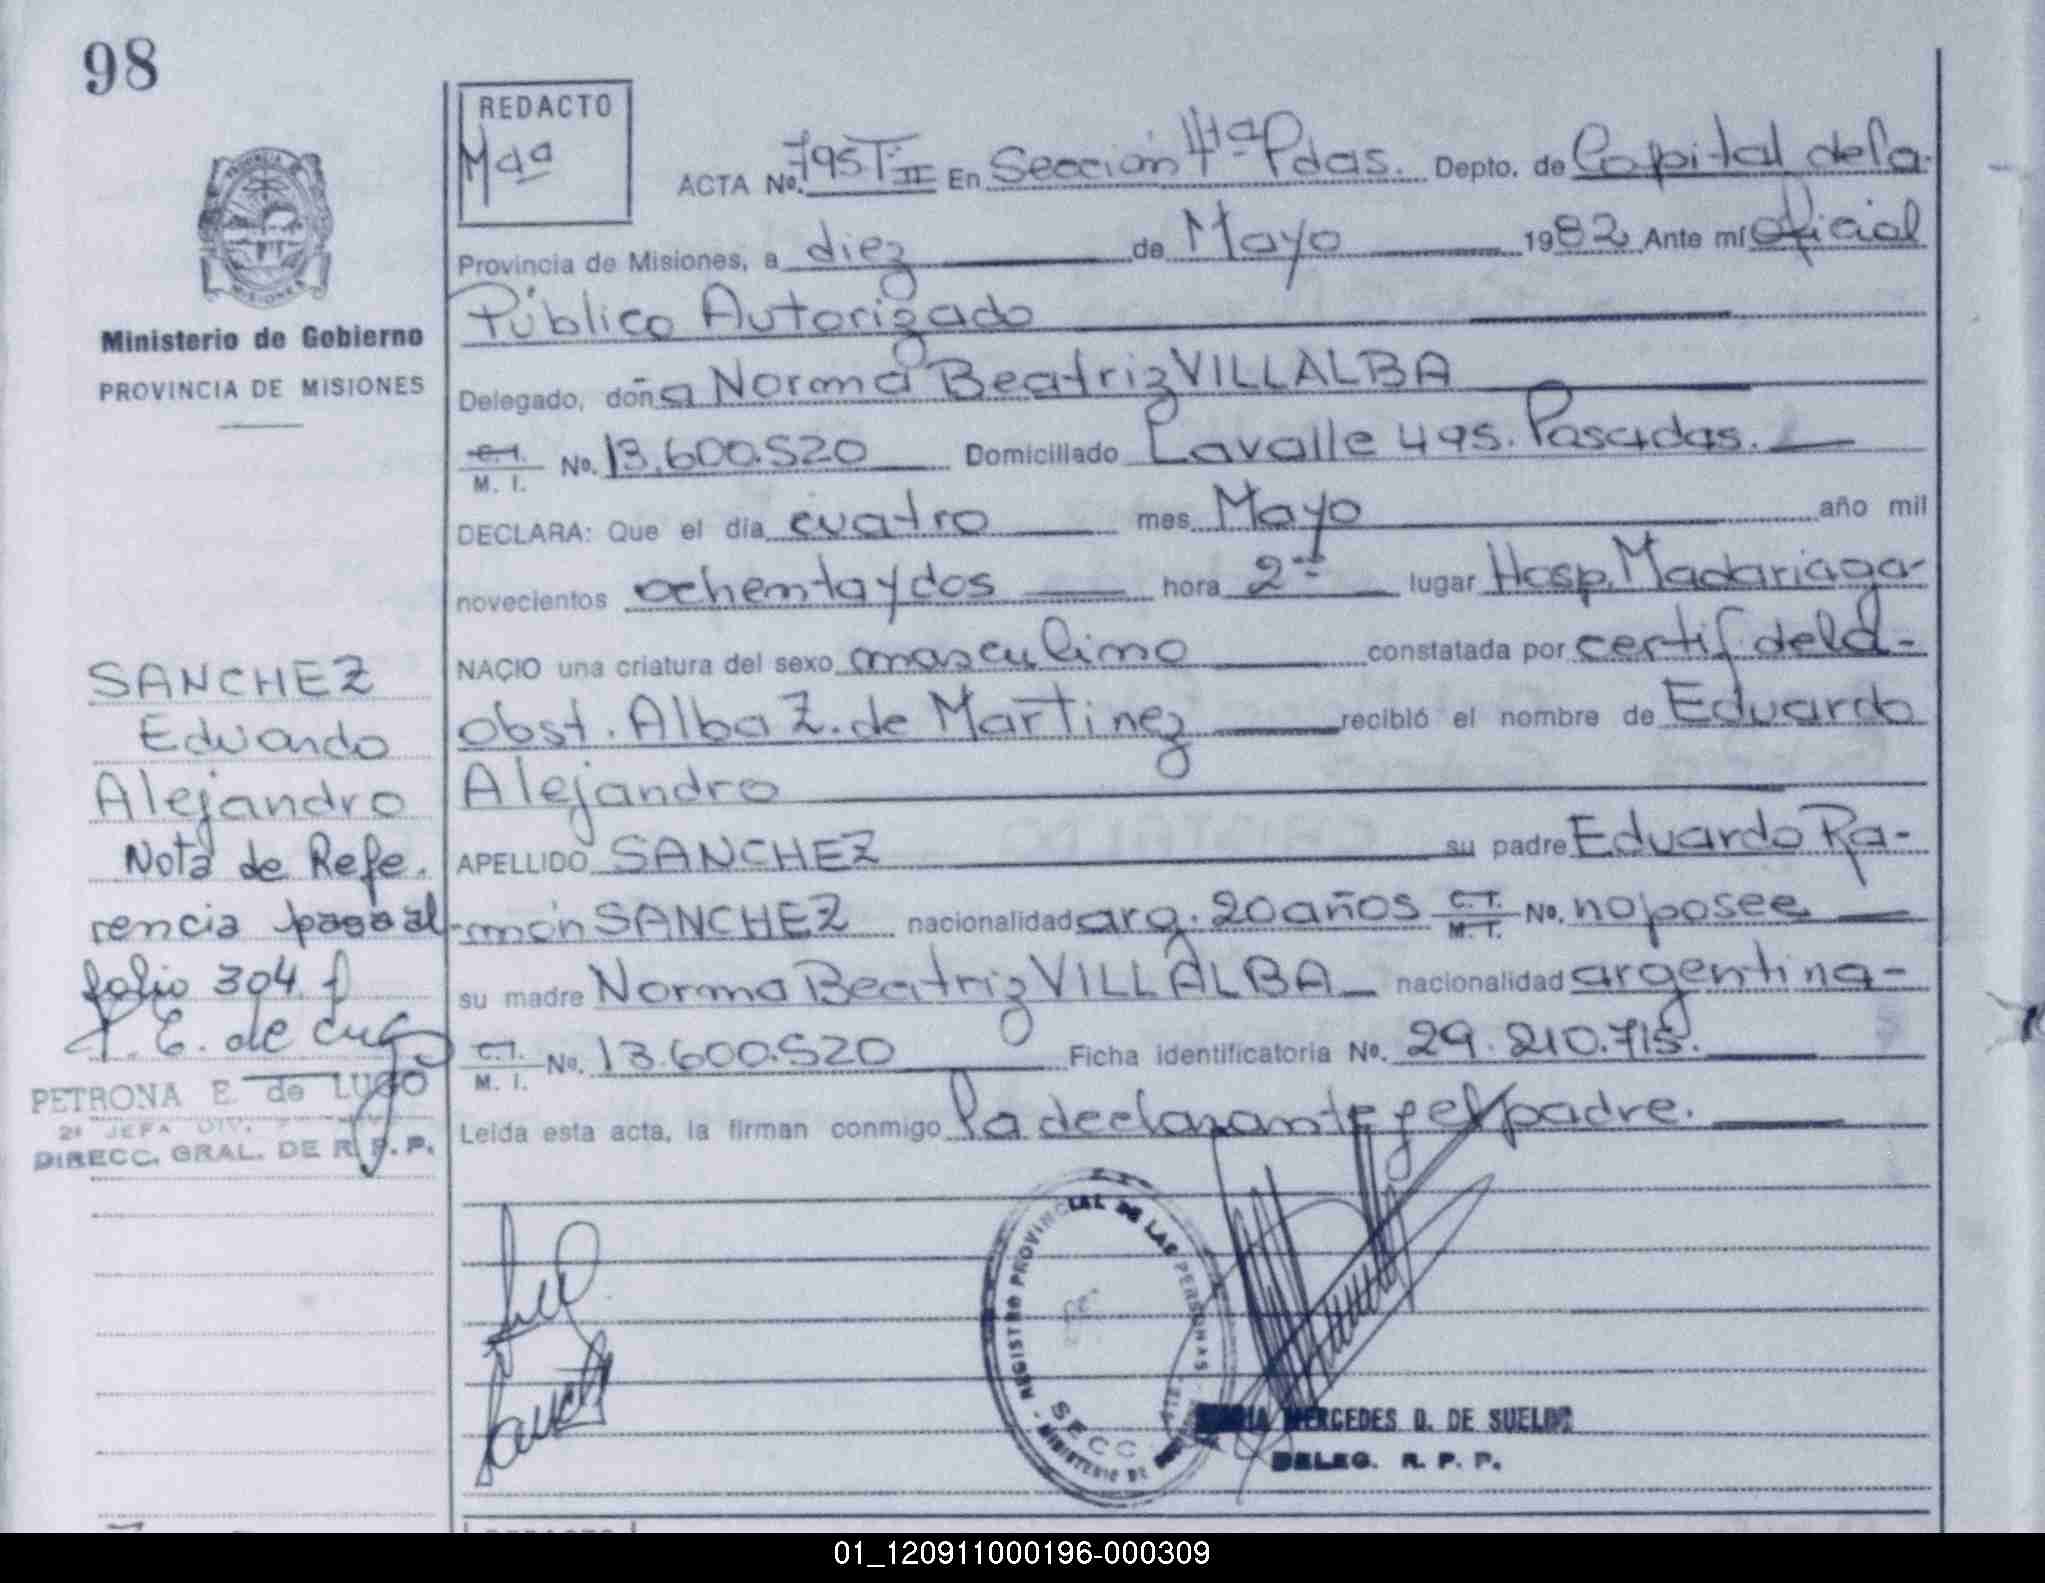 98
REDACTO
Mªª
ACTA No. 795 T II En Sección 4ª Pdas. Depto. de Capital de la
Provincia de Misiones, a diez de Mayo 1982 Ante mí Oficial
Público Autorizado
Delegado, doña Norma Beatriz VILLALBA
C.I. M. I. No. 13.600.520 Domiciliado Lavalle 495. Posadas.
DECLARA: Que el día cuatro mes Mayo año mil
novecientos ochenta y dos hora 2 lugar Hosp. Madariaga
NACIO una criatura del sexo masculino constatada por certif. de la
obst. Alba Z. de Martinez recibió el nombre de Eduardo
Alejandro
APELLIDO SANCHEZ su padre Eduardo Ra-
món SANCHEZ nacionalidad arg. 20 años C.I. M.I. No. no posee
su madre Norma Beatriz VILLALBA nacionalidad argentina
C.I. M. I. No. 13.600.520 Ficha identificatoria No. 29.210.715.
Leida esta acta, la firman conmigo la declarante y el padre.
MISIONES
Ministerio de Gobierno
PROVINCIA DE MISIONES
SANCHEZ
Eduardo
Alejandro
Nota de Refe.
rencia pasa al
folio 304
P. E. de Lugo
PETRONA E. de LUGO
JEFA DIV.
DIRECC. GRAL. DE R. P. P.
REGISTRO PROVINCIAL DE LAS PERSONAS
MINISTERIO DE
SECC
MERCEDES D. DE SUELDO
DELEG. R. P. P.
01_120911000196-000309